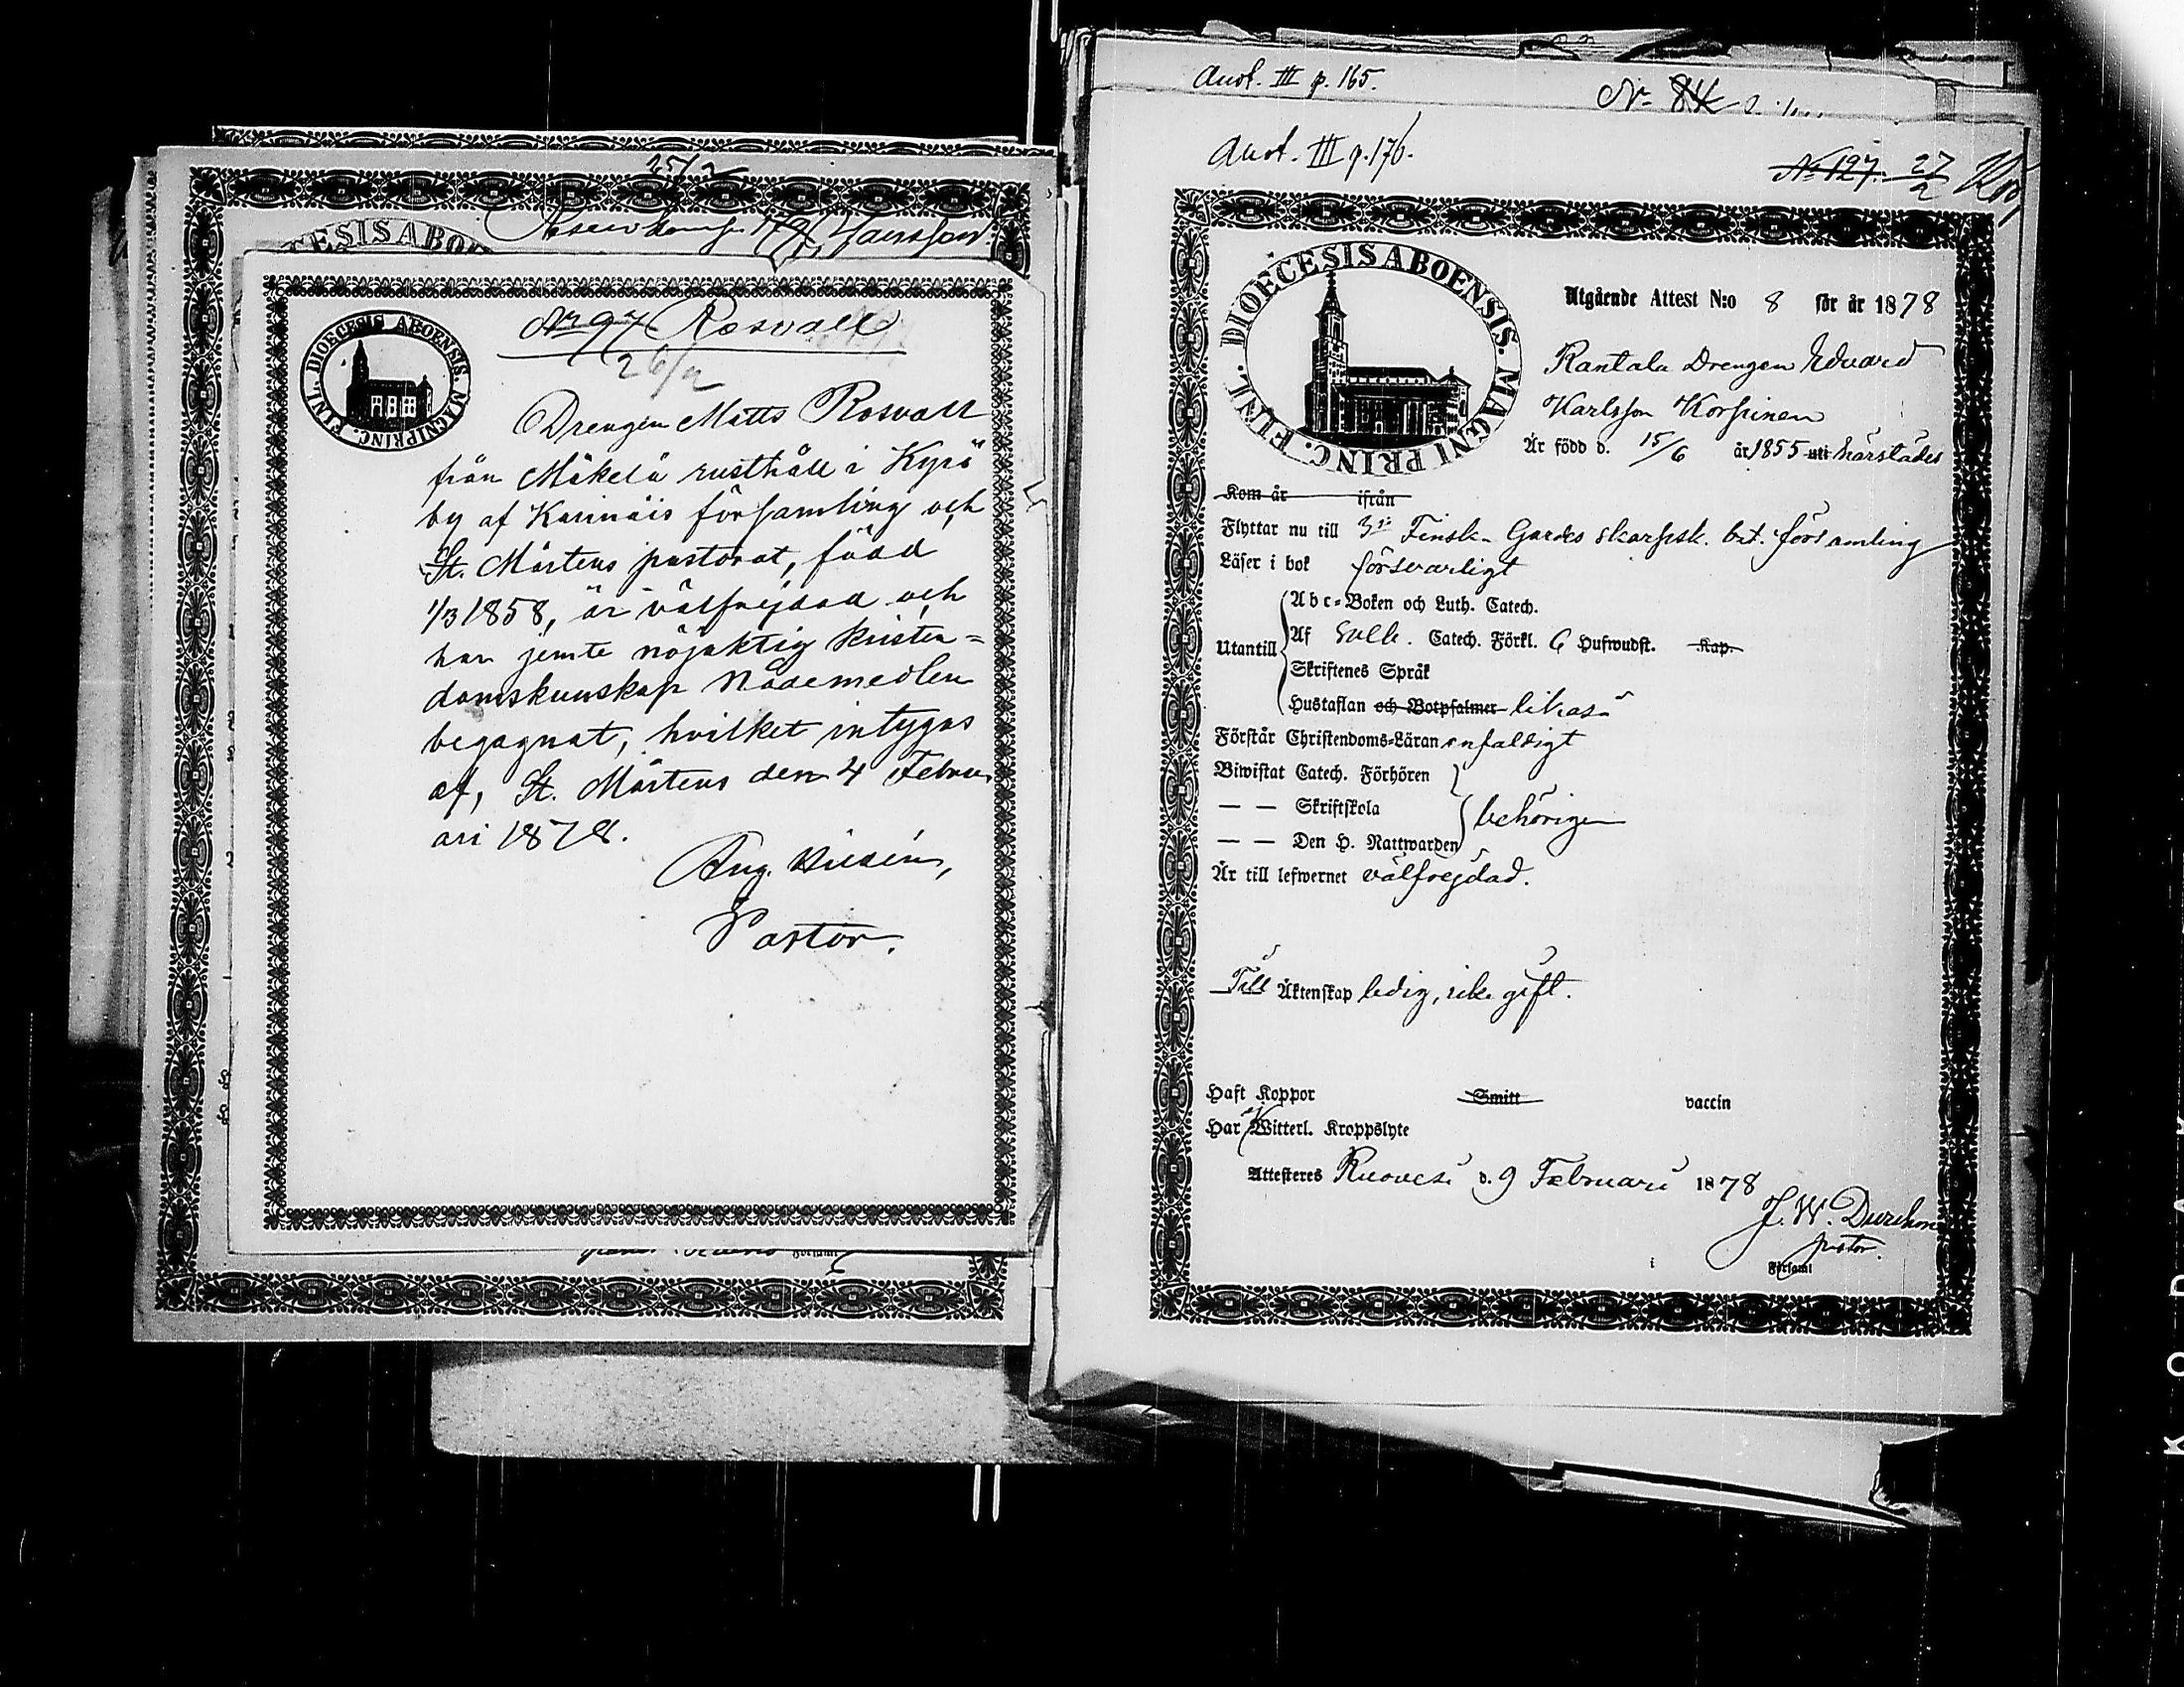 25/2
Jansson
CESIS ABO
DIOECESIS ABOENSIS. MAGNI PRINC. FINL.
No 97 Rosvall
26/2
Drengen Matts Rosvall
från Mäkelä rusthåll i Kyrö
by af Karinäis församling och
St. Mårtens pastorat, född
1/3 1858, är välfrejdad och
har jemte nöjaktig kristen=
domskunskap nådemedlen
begagnat, hvilket intygas
af, St. Mårtens den 4 Febru
ari 1878.
Aug.
Pastor.
Anot. III p. 165.
No 84
Anot. III p. 176.
No 127. 27/2
DIOECESIS ABOENSIS. MAGNI PRINC. FINL.
Utgående Attest N:o 8 för år 1878
Rantala Drengen Edvard
Karlsson Korpinen
Är född d. 15/6 år 1855 uti härstädes
Kom år ifrån
Flyttar nu till 3je Finsk. Gardes skarpsk. bat. församling
Läser i bok försvarligt
Utantill
Abc-Boken och Luth. Catech.
Af Svib. Catech. Förkl. 6 Hufwudst. Kap.
Skriftenes Språk
Hustaflan och Botpsalmer likaså
Förstår Christendoms-Läran enfaldigt
Biwistat Catech. Förhören
— — Skriftskola behörigen
— — Den H. Nattwarden
Är till lefwernet välfrejdad.
Till Äktenskap ledig, icke gift.
Haft Koppor Smitt vaccin
Har ej Witterl. Kroppslyte
Attesteres Ruovesi d. 9 Februari 1878
J. W. Durchman
pastor.
i Församl
KODAK